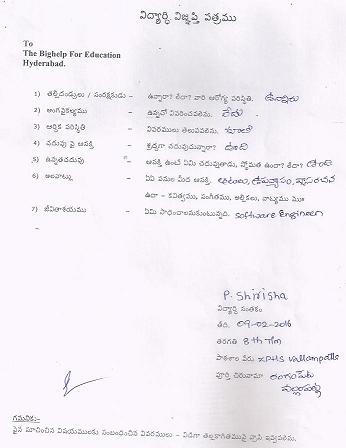 విద్యార్ధి విజ్ఞప్తి పత్రము
To
The Bighelp For Education
Hyderabad.
1) తల్లిదండ్రులు / సంరక్షకుడు - ఉన్నారా? లేదా? వారి ఆరోగ్య పరిస్థితి. ఉన్నారు
2) అంగవైకల్యము - ఉన్నచో వివరించవలెను. లేదు
3) ఆర్ధిక పరిస్థితి - వివరములు తెలుపవలెను.
4) చదువు పై ఆసక్తి - శ్రద్ధగా చదువుచున్నారా? ఉంది
5) ఉన్నతచదువు - ఆసక్తి ఉంటే ఏమి చదువుతాడు, స్తోమత ఉందా? లేదా?
6) అలవాట్లు - ఏఏ పనుల మీద ఆసక్తి. ఆటలు,
ఉదా - కవిత్వము, సంగీతము, అల్లికలు, నాట్యము మొ॥
7) జీవితాశయము - ఏమి సాధించాలనుకుంటున్నది. Software Engineer
P. Shirisha
విద్యార్ధి సంతకం
తేది. 09-02-2016
తరగతి 8th T/m
పాఠశాల పేరు ZPHS Vallampatla
పూర్తి చిరునామా
గమనిక:-
పైన సూచించిన విషయములకు సంబంధించిన వివరములు - విడిగా తెల్లకాగితముపై వ్రాసి ఇవ్వవలెను.